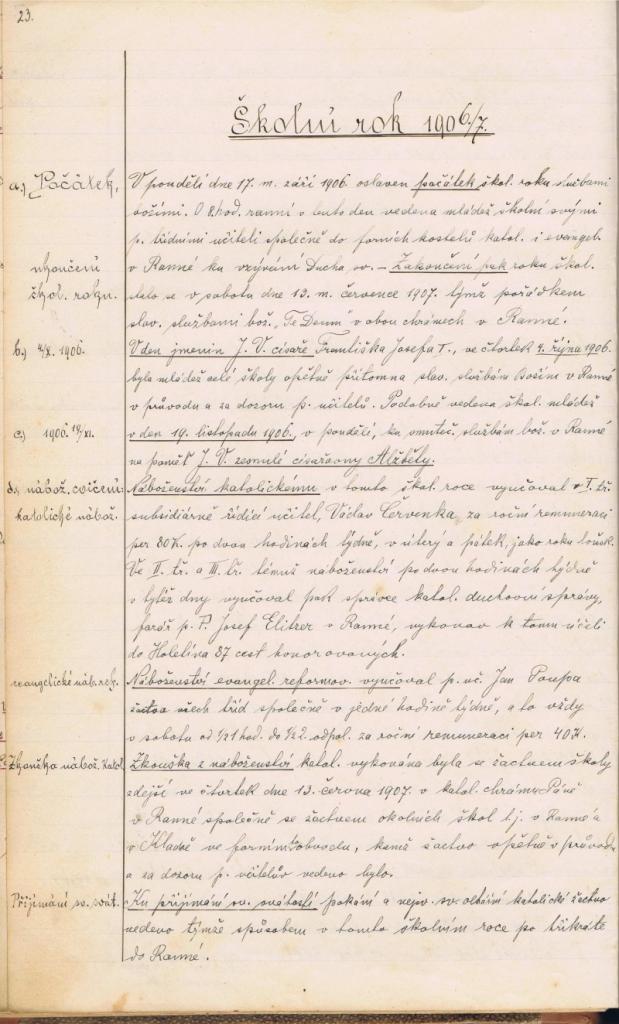 23.
Školní rok 1906/7.
a.) Počátek,
V pondělí dne 17. m. září 1906 oslaven počátek škol. roku službami
božími. O 8. hod. ranní v tento den vedena mládež školní svými
p. třídními učiteli společně do farních kostelů katol. i evangel.
ukončení
v Ranné ku vzývání Ducha sv. – Zakončení pak roku škol.
škol. roku.
stalo se v sobotu dne 13. m. července 1907. týmž pořádkem
slav. službami bož. „Te Deum" v obou chrámech v Ranné.
b.) 4/X. 1906.
V den jmenin J. V. císaře Františka Josefa I., ve čtvrtek 4. října 1906.
byla mládež celé školy opětně přítomna slav. službám Božím v Ranné
v průvodu a za dozoru p. učitelů. Podobně vedena škol. mládež
c.) 1906 19/XI.
v den 19. listopadu 1906., v pondělí, ku smuteč. službám bož. v Ranné
na paměť J. V. zesnulé císařovny Alžběty.
d.) nábož. cvičení:
Náboženství katolickému v tomto škol. roce vyučoval v I. tř.
katolické nábož.
subsidiárně řídící učitel, Václav Červenka, za roční remuneraci
per 80 K. po dvou hodinách týdně, v úterý a pátek, jako roku loňsk.
Ve II. tř. a III. tř. témuž náboženství po dvou hodinách týdně
v tytéž dny vyučoval pak správce katol. duchovní správy,
farář p. P. Josef Elitzer v Ranné, vykonav k tomu účeli
do Holetína 87 cest honorovaných.
evangelické náb. ref.
Náboženství evangel. reformov. vyučoval p. uč. Jan Poupa
žactvo všech tříd společně v jedné hodině týdně, a to vždy
v sobotu od 1/21 hod. do 1/22. odpol. za roční remuneraci per 40 K.
Zkouška nábož. katol.
Zkouška z náboženství katol. vykonána byla se žactvem školy
zdejší ve čtvrtek dne 13. června 1907. v katol. chrámu Páně
v Ranné společně se žactvem okolních škol tj. v Ranné a
v Kladně ve farním obvodu, kamž žactvo opětně v průvodu
a za dozoru p. učitelův vedeno bylo.
Přijímání sv. svát.
Ku přijímání sv. svátosti pokání a nejsv. sv. oltářní katolické žactvo
vedeno týmže způsobem v tomto školním roce po třikráte
do Ranné.